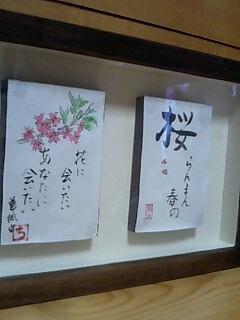 桜
らんまん
春の
花に
会いたい
あなたに
会いたい